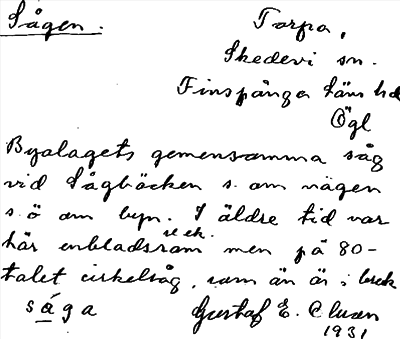 Sågen.
Torpa,
Skedevi sn.
Finspånga läns hd
Ögl
Byalagets gemensamma såg
vid Sågbäcken s. om vägen
s.ö om byn. I äldre tid var
här enbladsram men på 80-
talet cirkelsåg, som än är i bruk
såga Gustaf E.
1931